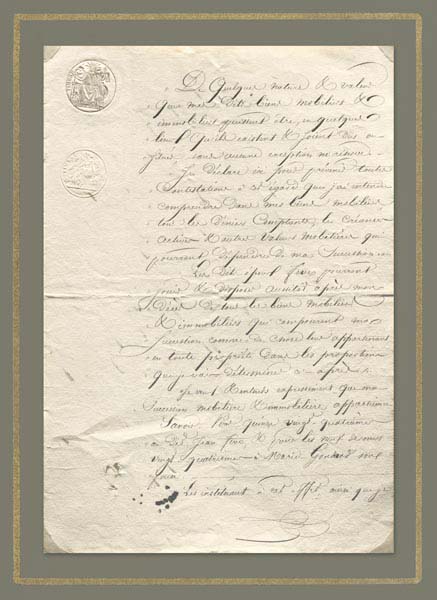 « De Quelque nature & valeur
que mes dits biens mobiliers &
immobiliers puissent être, en quelque
lieu qu'ils existent & soient dus ou
sans aucune exception ni réserve.
Je déclare ici pour prévenir toutes
Contestations à cet égard que j'ai entendu
comprendre dans mes biens mobiliers
tous les deniers Comptants, les Créances
actives & autres valeurs mobilières qui
pourront dépendre de ma Succession
Les dit époux pourront
jouir & disposer aussitôt après mon
Décès de tous les biens mobiliers
& immobiliers qui composeront ma
Succession comme de chose leur appartenant
en toute propriété dans les proportions
que je vais déterminer ci-après.
Je veux & entends expressément que ma
Succession mobilière & immobilière appartienne
Savoir Pour quinze vingt quatrièmes
à Jean & pour les neuf
vingt quatrièmes à Marie
Les instituant à cet effet, ainsi que je